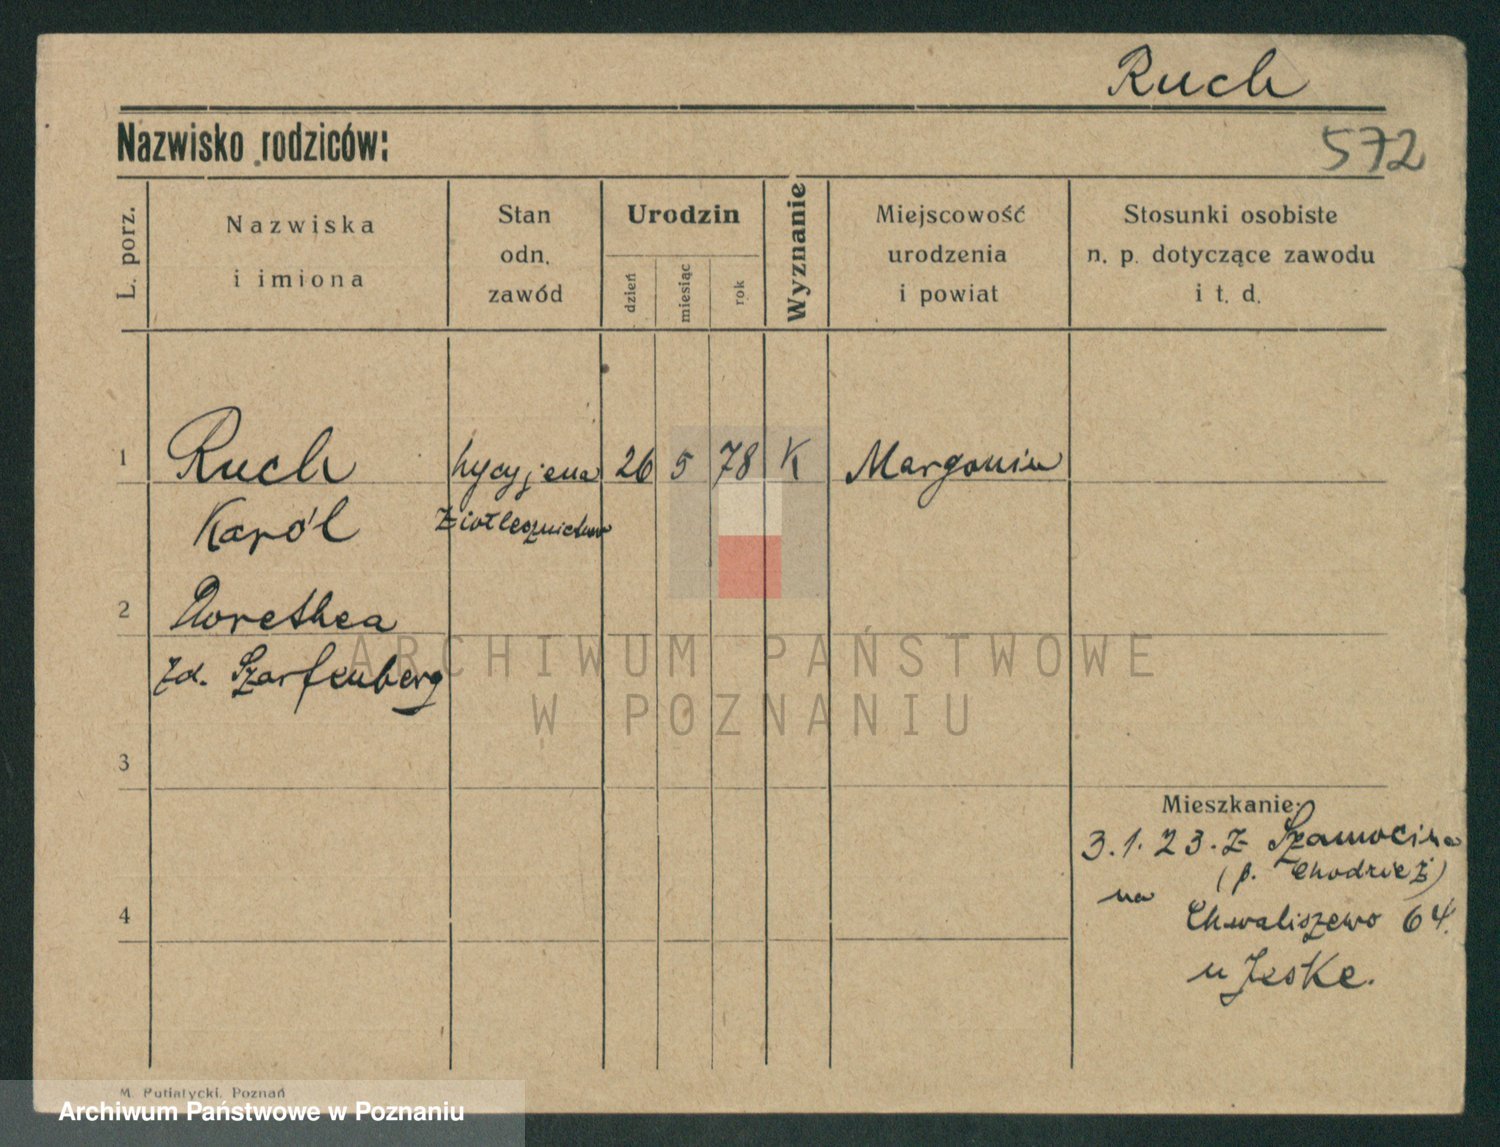 Ruch
Nazwisko rodziców:
572
L. porz.
Nazwiska
i imiona
Stan
odn.
zawód
Urodzin
dzień
miesiąc
rok
Wyznanie
Miejscowość
urodzenia
i powiat
Stosunki osobiste
n. p. dotyczące zawodu
i t. d.
1 Ruch hycyjena 26 5 78 K Margonin
Karól Ziołlecznictwo
2 Dorethea
zd. Szarfenberg
ARCHIWUM PAŃSTWOWE
W POZNANIU
3
Mieszkanie:
3.1.23. Z Szamocina
(p. Chodzież)
na
4 Chwaliszewo 64.
u Jeske.
M. Putiatycki, Poznań
Archiwum Państwowe w Poznaniu